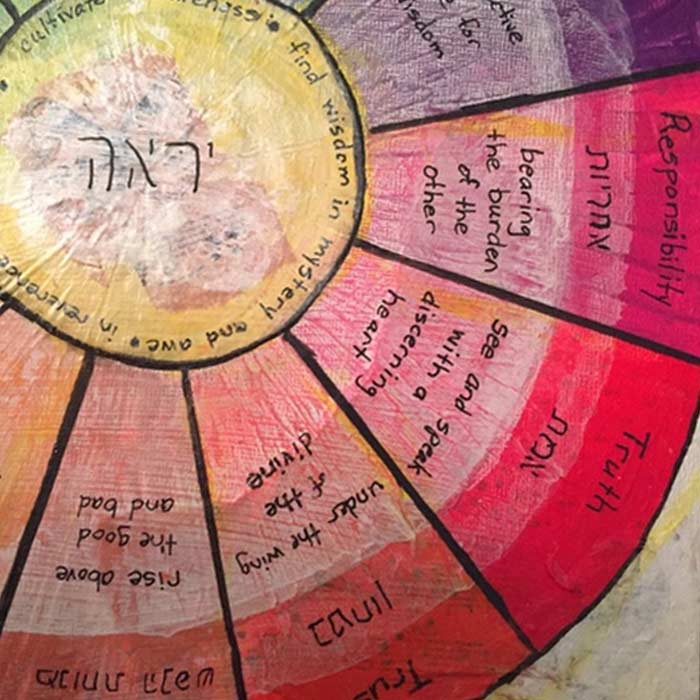 cultivate
find wisdom in mystery and awe • in reverence
יראה
for
Responsibility
אחריות
bearing
the burden
of the
other
Truth
אמת
see and speak
with a
discerning
heart
בטחון
under the wing
of the
divine
rise above
the good
and bad